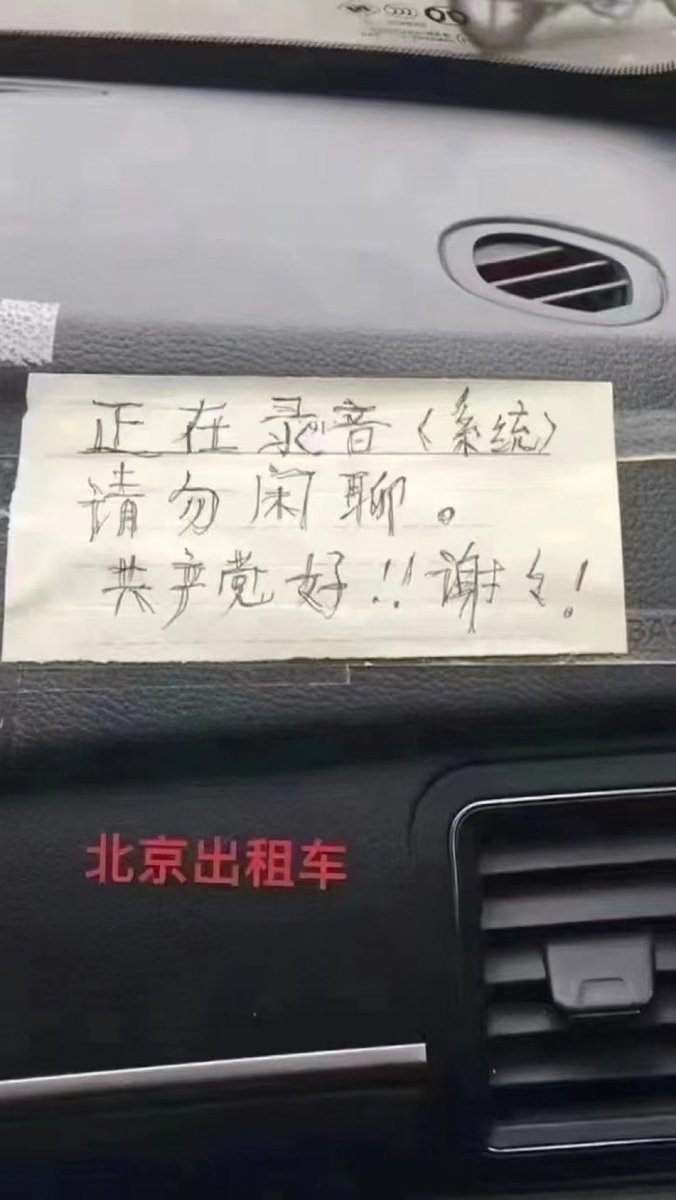 正在录音（系统）
请勿闲聊。
共产党好!!谢々!
北京出租车